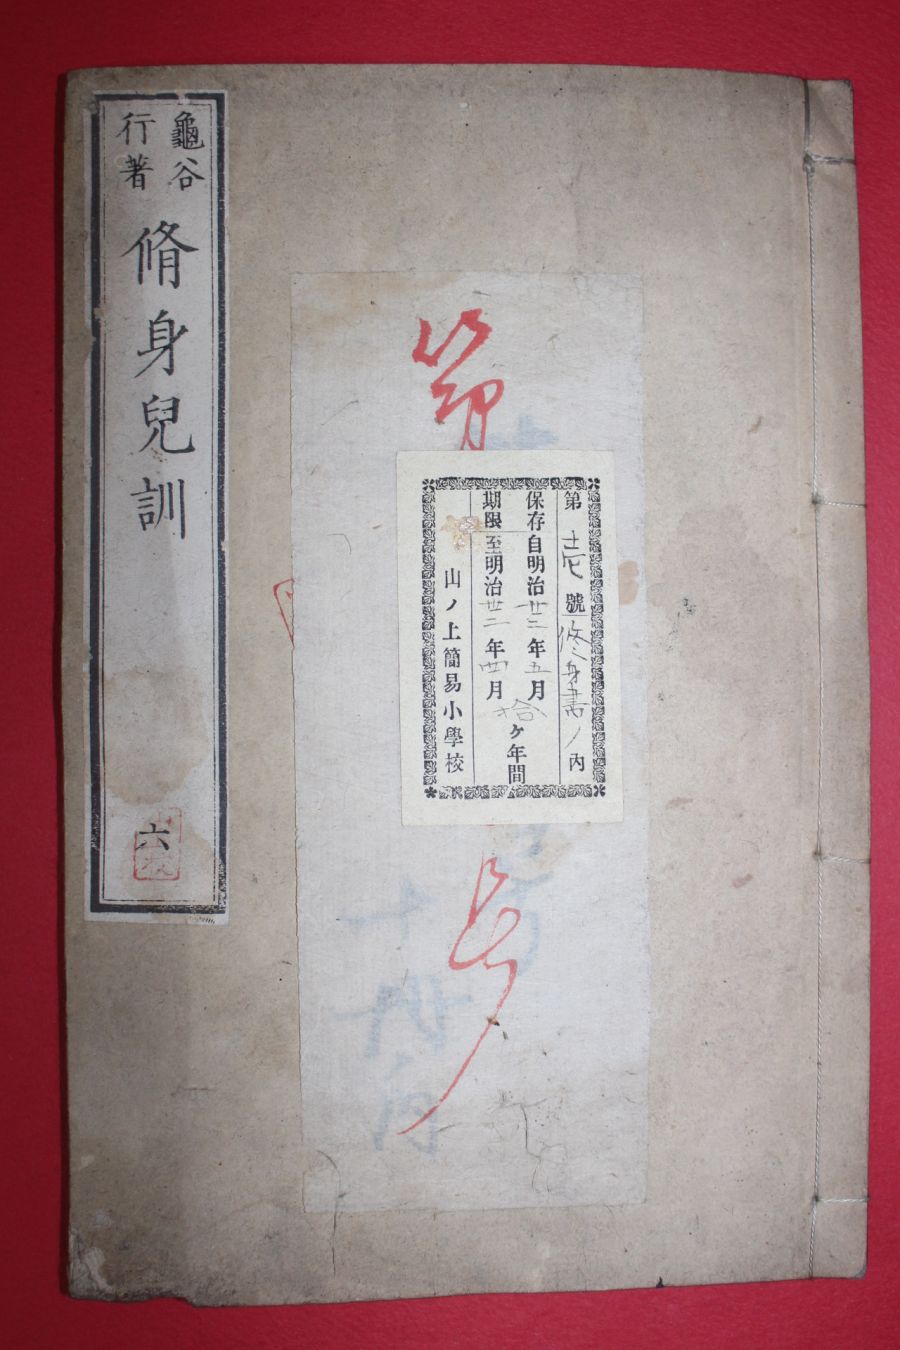 第壱號修身書ノ内
保存自明治廿二年五月
期限至明治卅二年四月
拾ケ年間
山ノ上簡易小學校
龜谷
行著
脩身兒訓
六